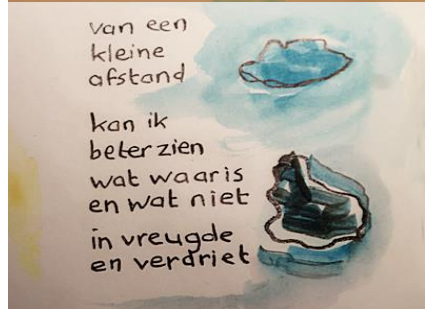 van een
kleine
afstand
kan ik
beter zien
wat waar is
en wat niet
in vreugde
en verdriet